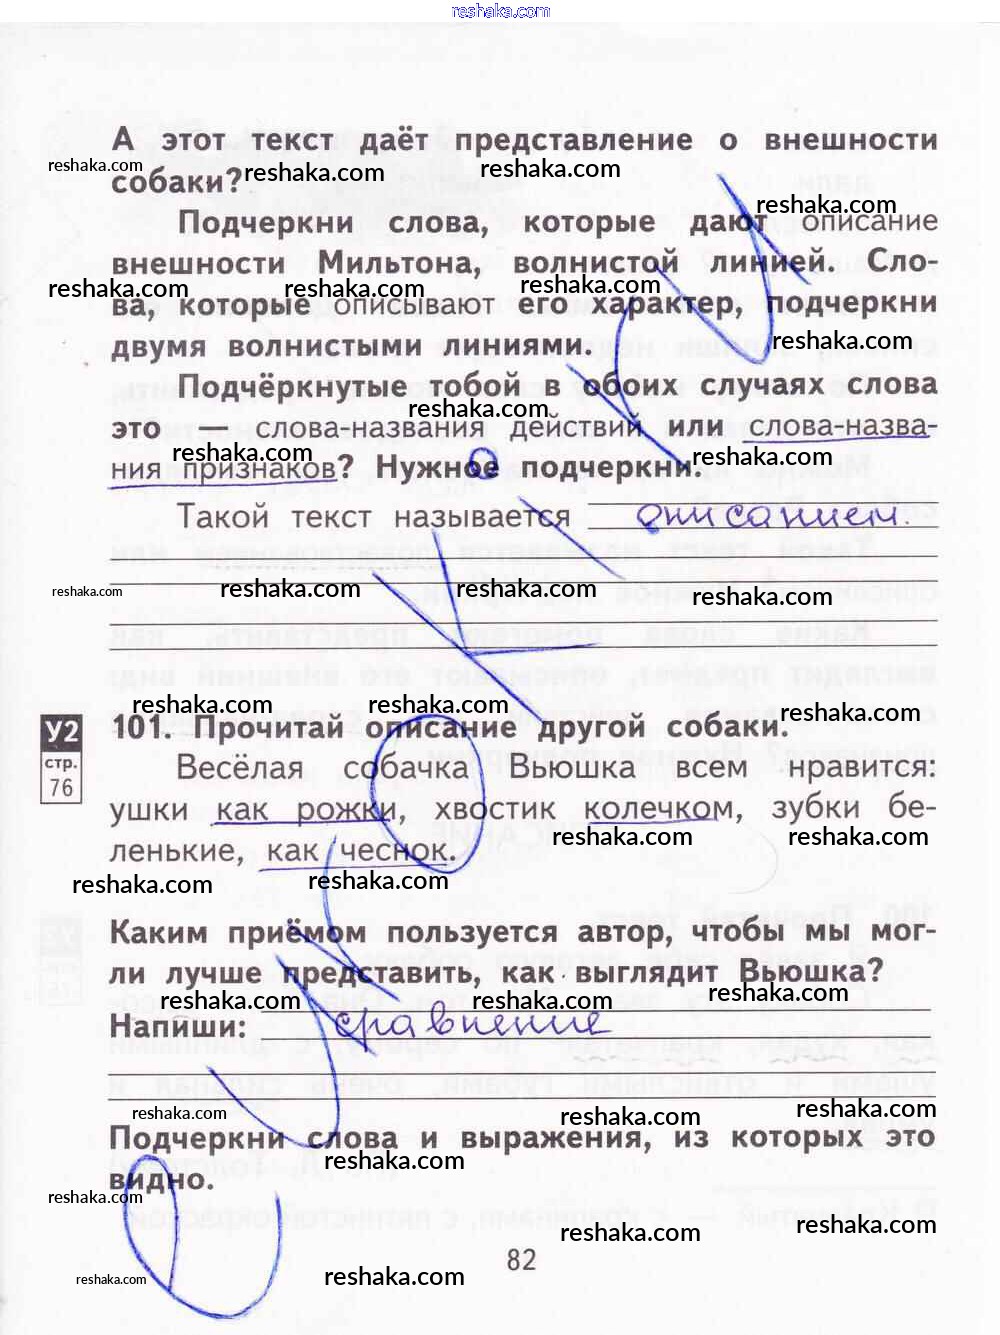 reshaka.com
А этот текст даёт представление о внешности
reshaka.com reshaka.com reshaka.com
собаки?
reshaka.com
Подчеркни слова, которые дают описание
внешности Мильтона, волнистой линией. Сло-
reshaka.com reshaka.com reshaka.com
ва, которые описывают его характер, подчеркни
reshaka.com
двумя волнистыми линиями.
Подчёркнутые тобой в обоих случаях слова
reshaka.com
это — слова-названия действий или слова-назва-
reshaka.com reshaka.com
ния признаков? Нужное подчеркни.
Такой текст называется описанием.
reshaka.com reshaka.com reshaka.com reshaka.com
reshaka.com reshaka.com reshaka.com
У2
стр.
76
101. Прочитай описание другой собаки.
Весёлая собачка Вьюшка всем нравится:
ушки как рожки, хвостик колечком, зубки бе-
reshaka.com reshaka.com
ленькие, как чеснок.
reshaka.com reshaka.com
Каким приёмом пользуется автор, чтобы мы мог-
ли лучше представить, как выглядит Вьюшка?
reshaka.com reshaka.com reshaka.com
Напиши: сравнение
reshaka.com reshaka.com reshaka.com
Подчеркни слова и выражения, из которых это
reshaka.com
видно.
reshaka.com reshaka.com reshaka.com
82
reshaka.com reshaka.com reshaka.com